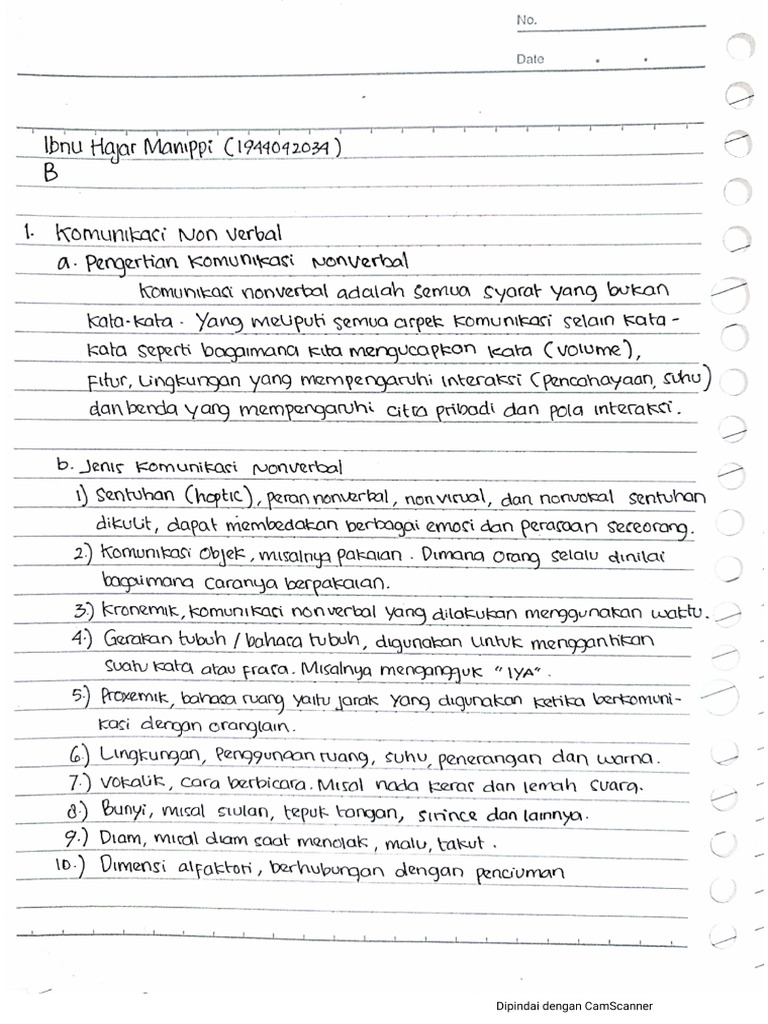 No.
Date
Ibnu Hajar Manippi (1944042034)
B
1. Komunikasi Non Verbal
a. Pengertian Komunikasi Nonverbal
Komunikasi nonverbal adalah semua syarat yang bukan
kata-kata. Yang meliputi semua aspek komunikasi selain kata-
kata seperti bagaimana kita mengucapkan kata (volume),
fitur, lingkungan yang mempengaruhi interaksi (pencahayaan, suhu)
dan benda yang mempengaruhi citra pribadi dan pola interaksi.
b. Jenis Komunikasi Nonverbal
1) Sentuhan (haptic), peran nonverbal, nonvisual, dan nonvokal sentuhan
dikulit, dapat membedakan berbagai emosi dan perasaan seseorang.
2.) Komunikasi Objek, misalnya pakaian. Dimana orang selalu dinilai
bagaimana caranya berpakaian.
3.) Kronemik, komunikasi nonverbal yang dilakukan menggunakan waktu.
4.) Gerakan tubuh / bahasa tubuh, digunakan untuk menggantikan
suatu kata atau frasa. Misalnya mengangguk "IYA".
5.) Proxemik, bahasa ruang yaitu jarak yang digunakan ketika berkomuni-
kasi dengan oranglain.
6.) Lingkungan, Penggunaan ruang, suhu, penerangan dan warna.
7.) Vokalik, cara berbicara. Misal nada keras dan lemah suara.
8.) Bunyi, misal siulan, tepuk tangan, sirince dan lainnya.
9.) Diam, misal diam saat menolak, malu, takut.
10.) Dimensi alfaktori, berhubungan dengan penciuman
Dipindai dengan CamScanner